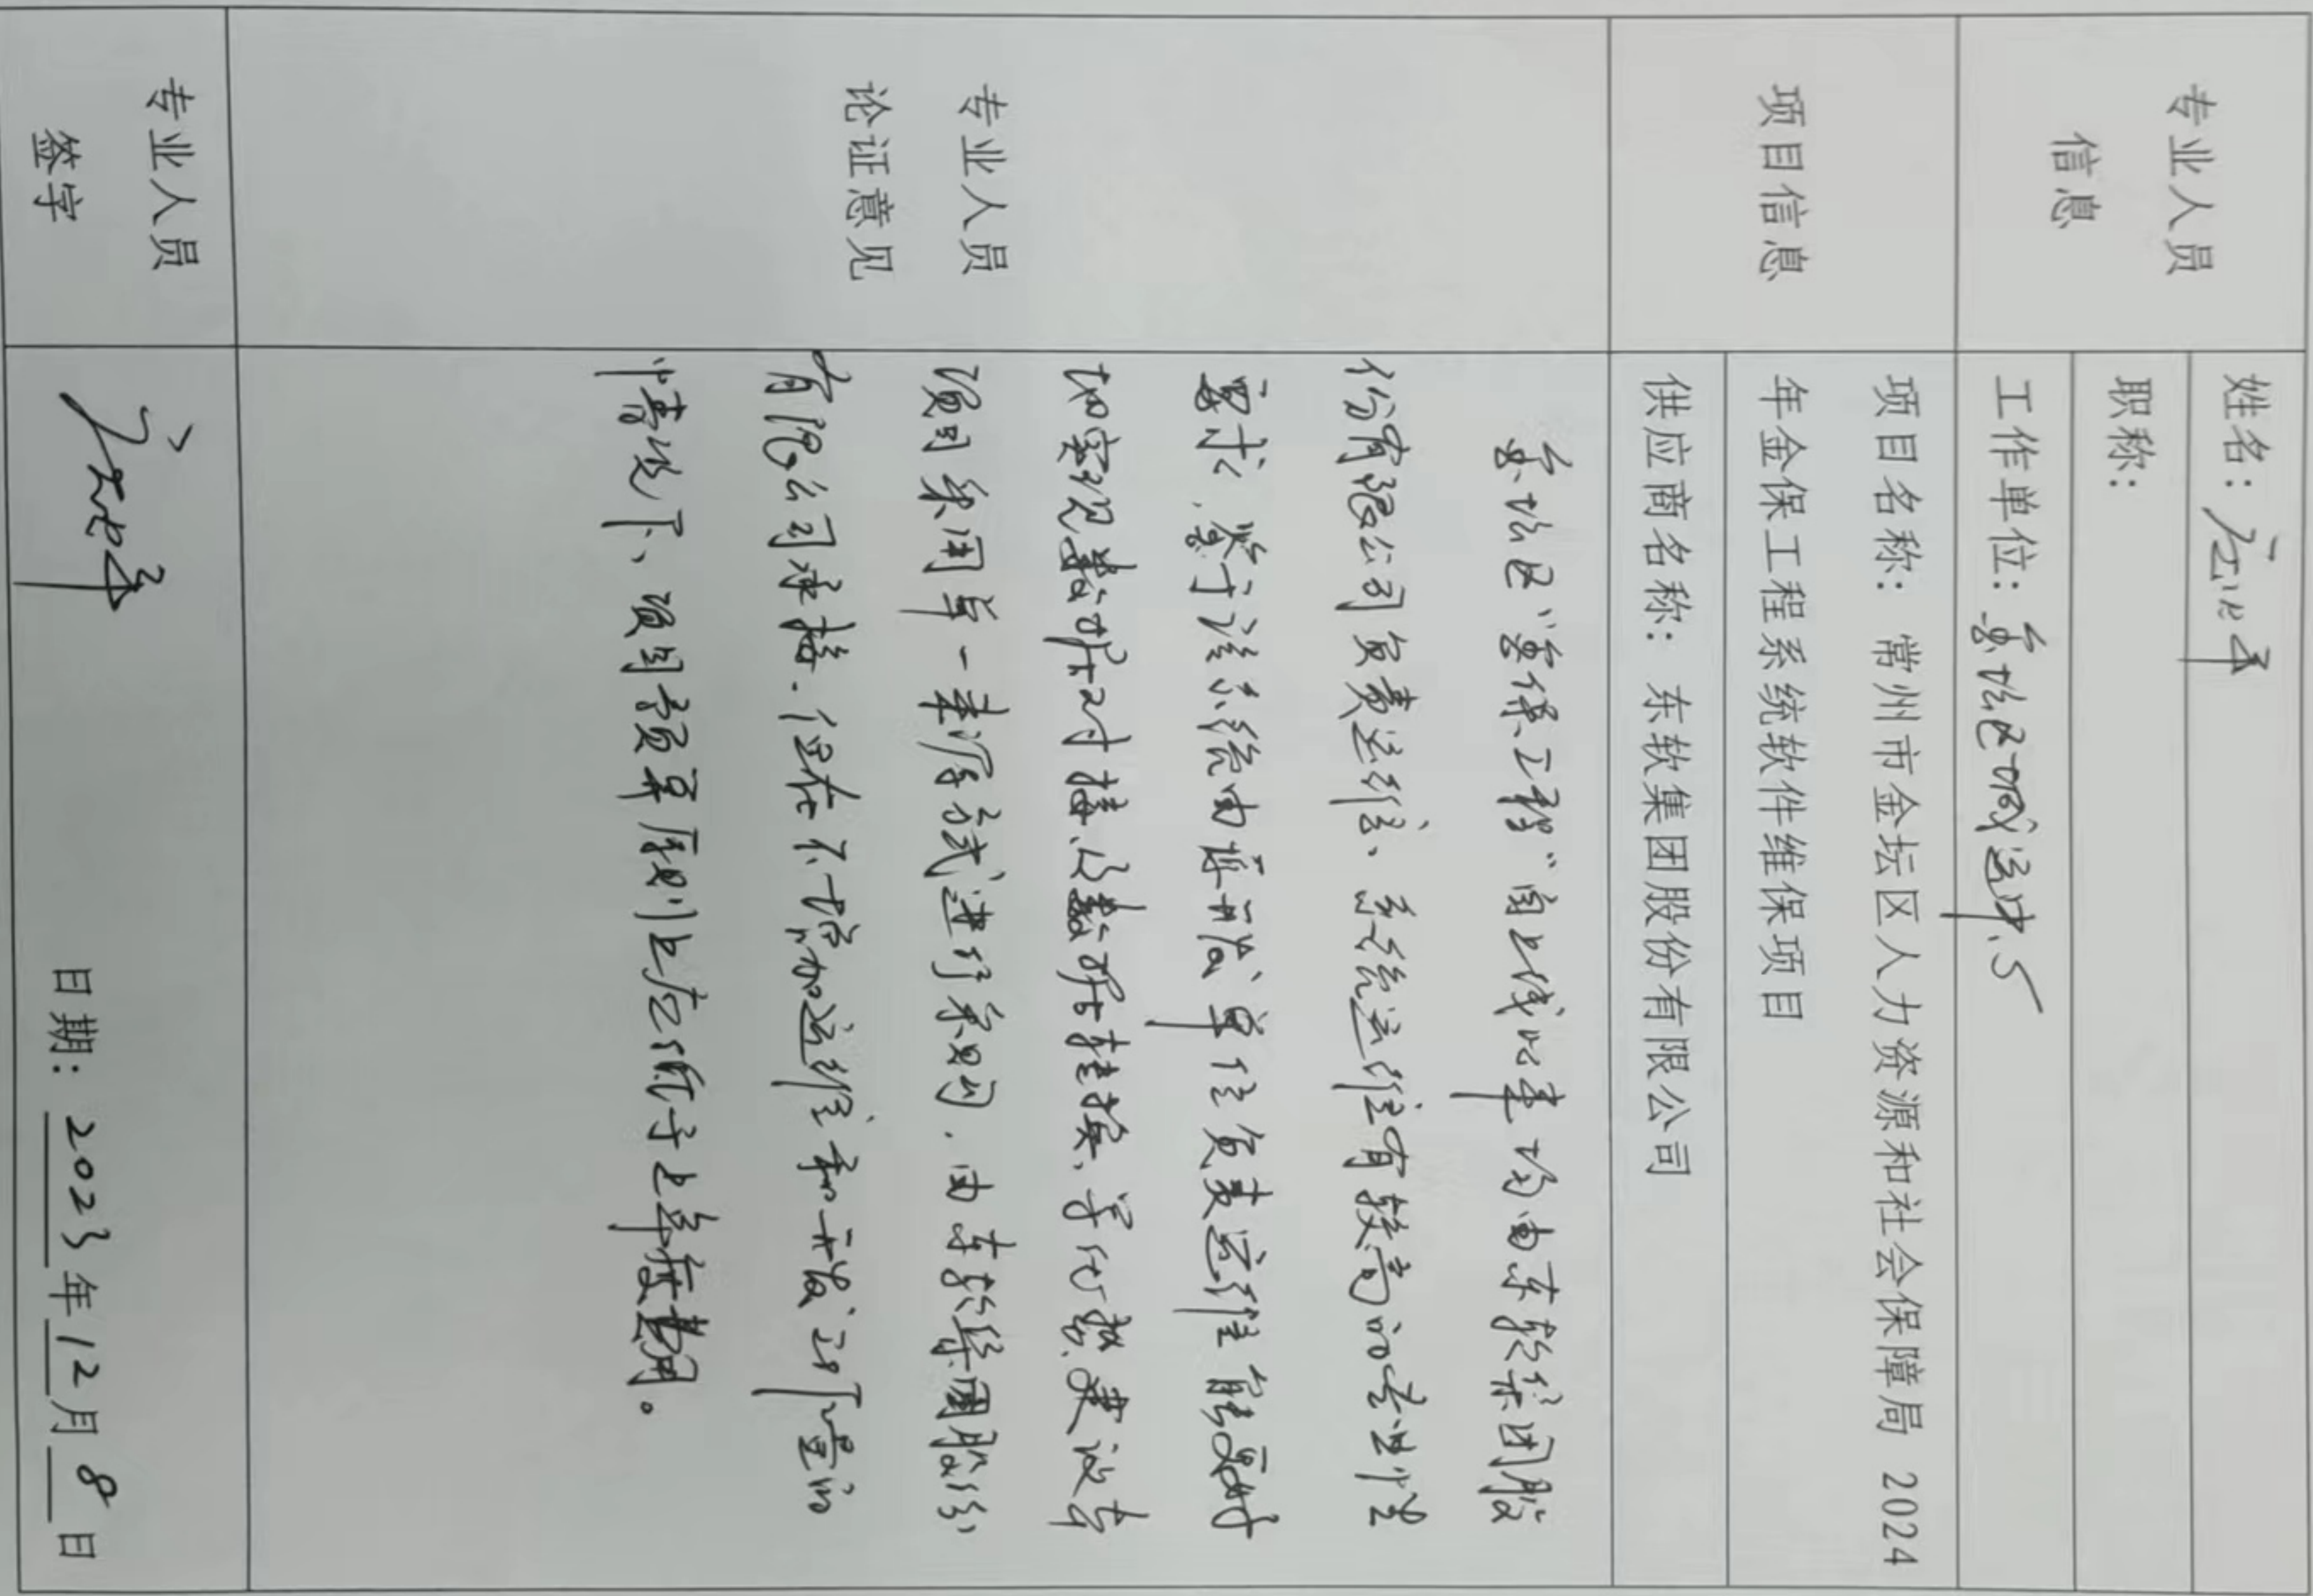 专业人员
信息
姓名：
职称：
工作单位：金坛区城运中心
项目信息
项目名称： 常州市金坛区人力资源和社会保障局 2024
年金保工程系统软件维保项目
供应商名称： 东软集团股份有限公司
专业人员
论证意见
金坛区“金保工程”自上线以来均由东软集团股
份有限公司负责运维、系统运维有较高的专业性
要求，鉴于该系统由原开发单位负责运维能更好
地实现数据对接、数据转换、建议本
项目采用单一来源方式进行采购，由东软集团股份
有限公司承接，但在不增加运维和开发工作量的
情况下、项目预算原则上应低于上年度费用。
专业人员
签字
日期：2023年12月8日